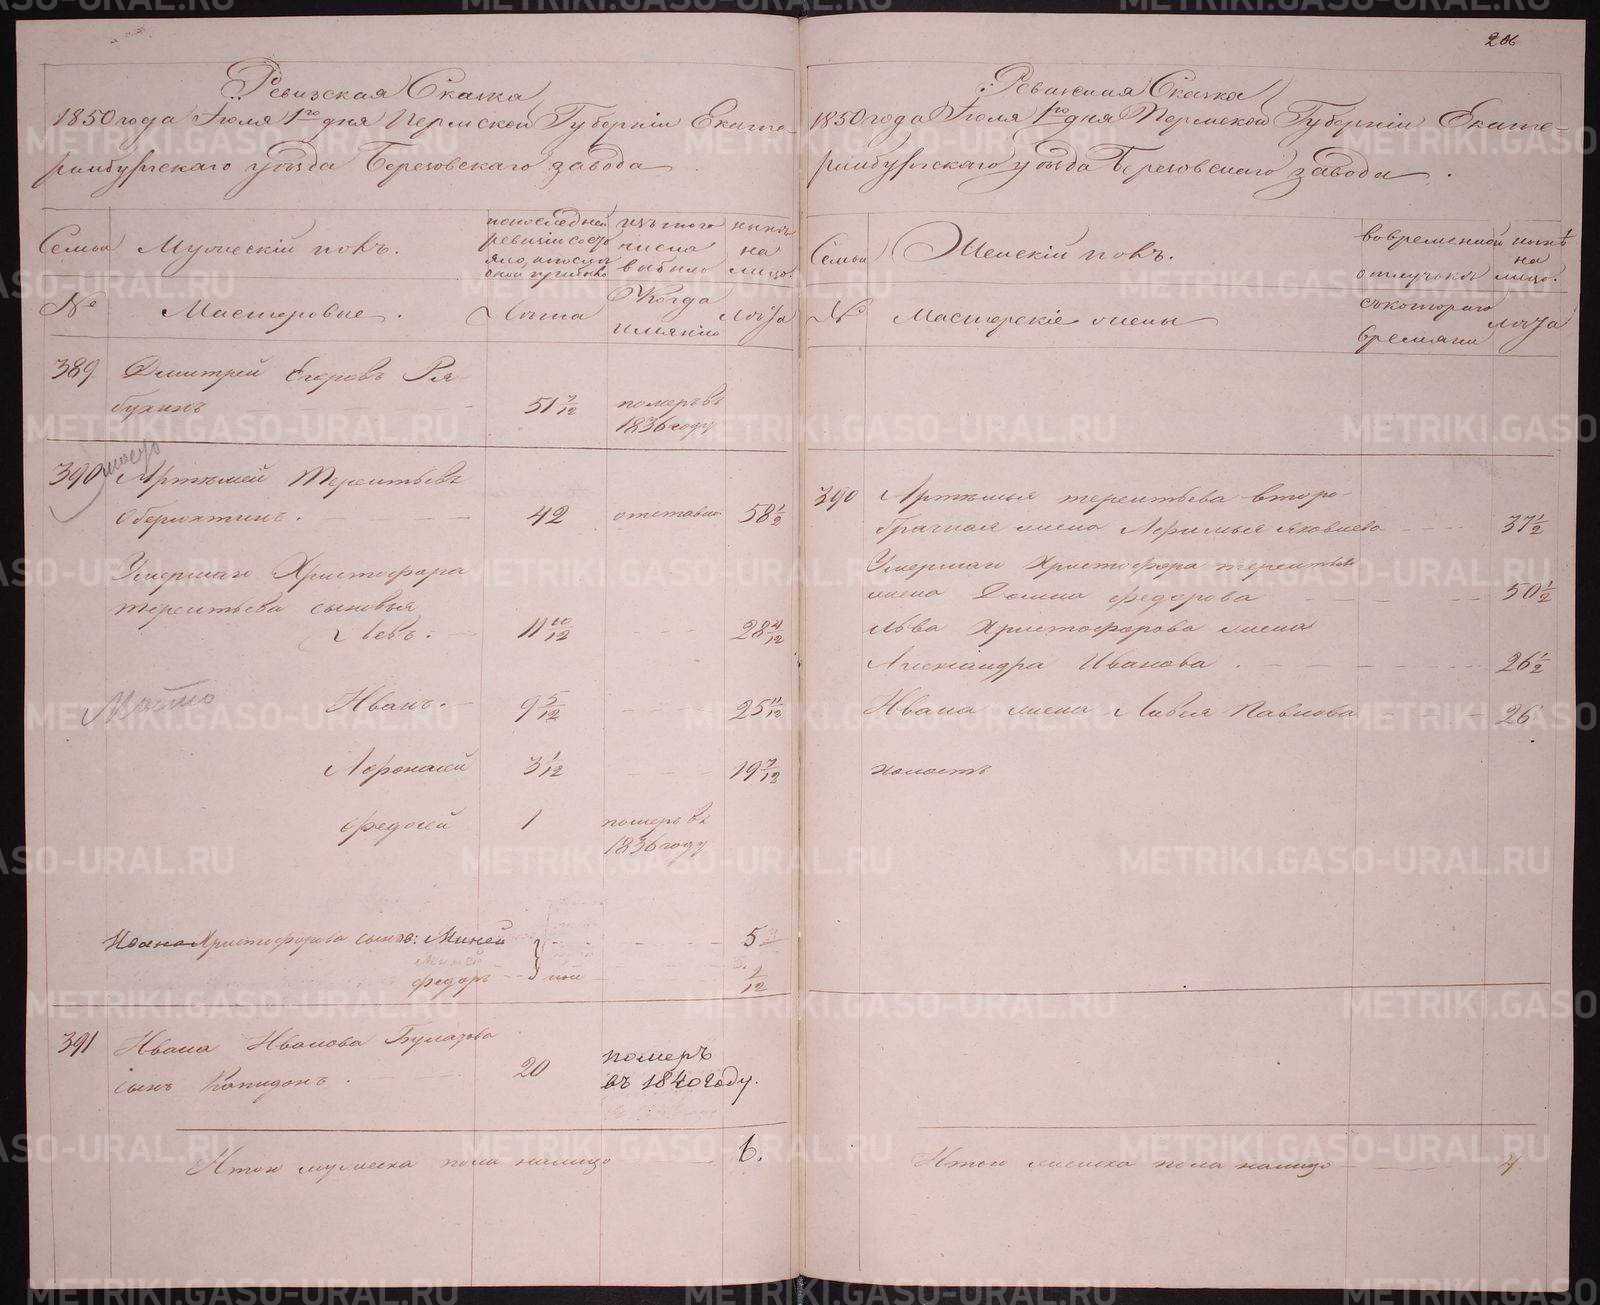 206
Ревизская Сказка
1850 года Іюля 1го дня Пермской Губерніи Екате-
ринбургскаго уѣзда Березовскаго завода
Семьи
Мужескій полъ.
по последней ревизіи состояло, и после оной прибыло
изъ того числа выбыло
нынѣ на лицо.
№
Мастеровые.
Лѣта
Когда имянно
Лѣта
389 Дмитрей Егоровъ Ря-
бухинъ 51 7/12 померъ въ 1836 году
390 Артемей Терентьевъ
Оберюхтинъ. 42 отставн. 58 1/2
Умершаго Христофора
терентьева сыновья
Левъ. 11 10/12 28 4/12
Иванъ. 9 5/12 25 11/12
Афонасей 3 1/12 19 7/12
Федосей 1 померъ въ 1836 году
Христофорова сынъ: Миней 5
Федоръ 1/12
391 Ивана Иванова
сынъ Капидонъ. 20 померъ въ 1840 году.
Итого мужеска пола налицо 6.
Ревизская Сказка
1850 года Іюля 1го дня Пермской Губерніи Екате-
ринбургскаго уѣзда Березовскаго завода.
Семьи
Женскій полъ.
во временной отлучкѣ
нынѣ на лицо.
№
Мастерскіе жены
съ котораго времяни
Лѣта
390 Артемья терентьева второ-
брачная жена Афимья Яковлева 37 1/2
Умершаго Христофора терентьева
жена Домна Федорова 50 1/2
Льва Христофорова жена
Александра Иванова. 26 1/2
Ивана жена Павлова 26
холостъ
Итого женска пола налицо 4
METRIKI.GASO-URAL.RU